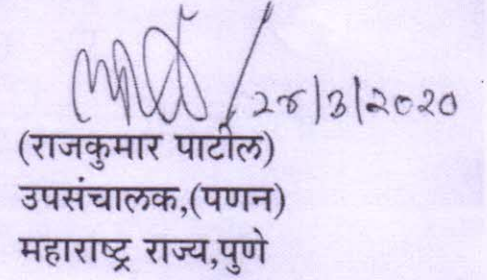 २४/३/२०२०
(राजकुमार पाटील)
उपसंचालक,(पणन)
महाराष्ट्र राज्य,पुणे